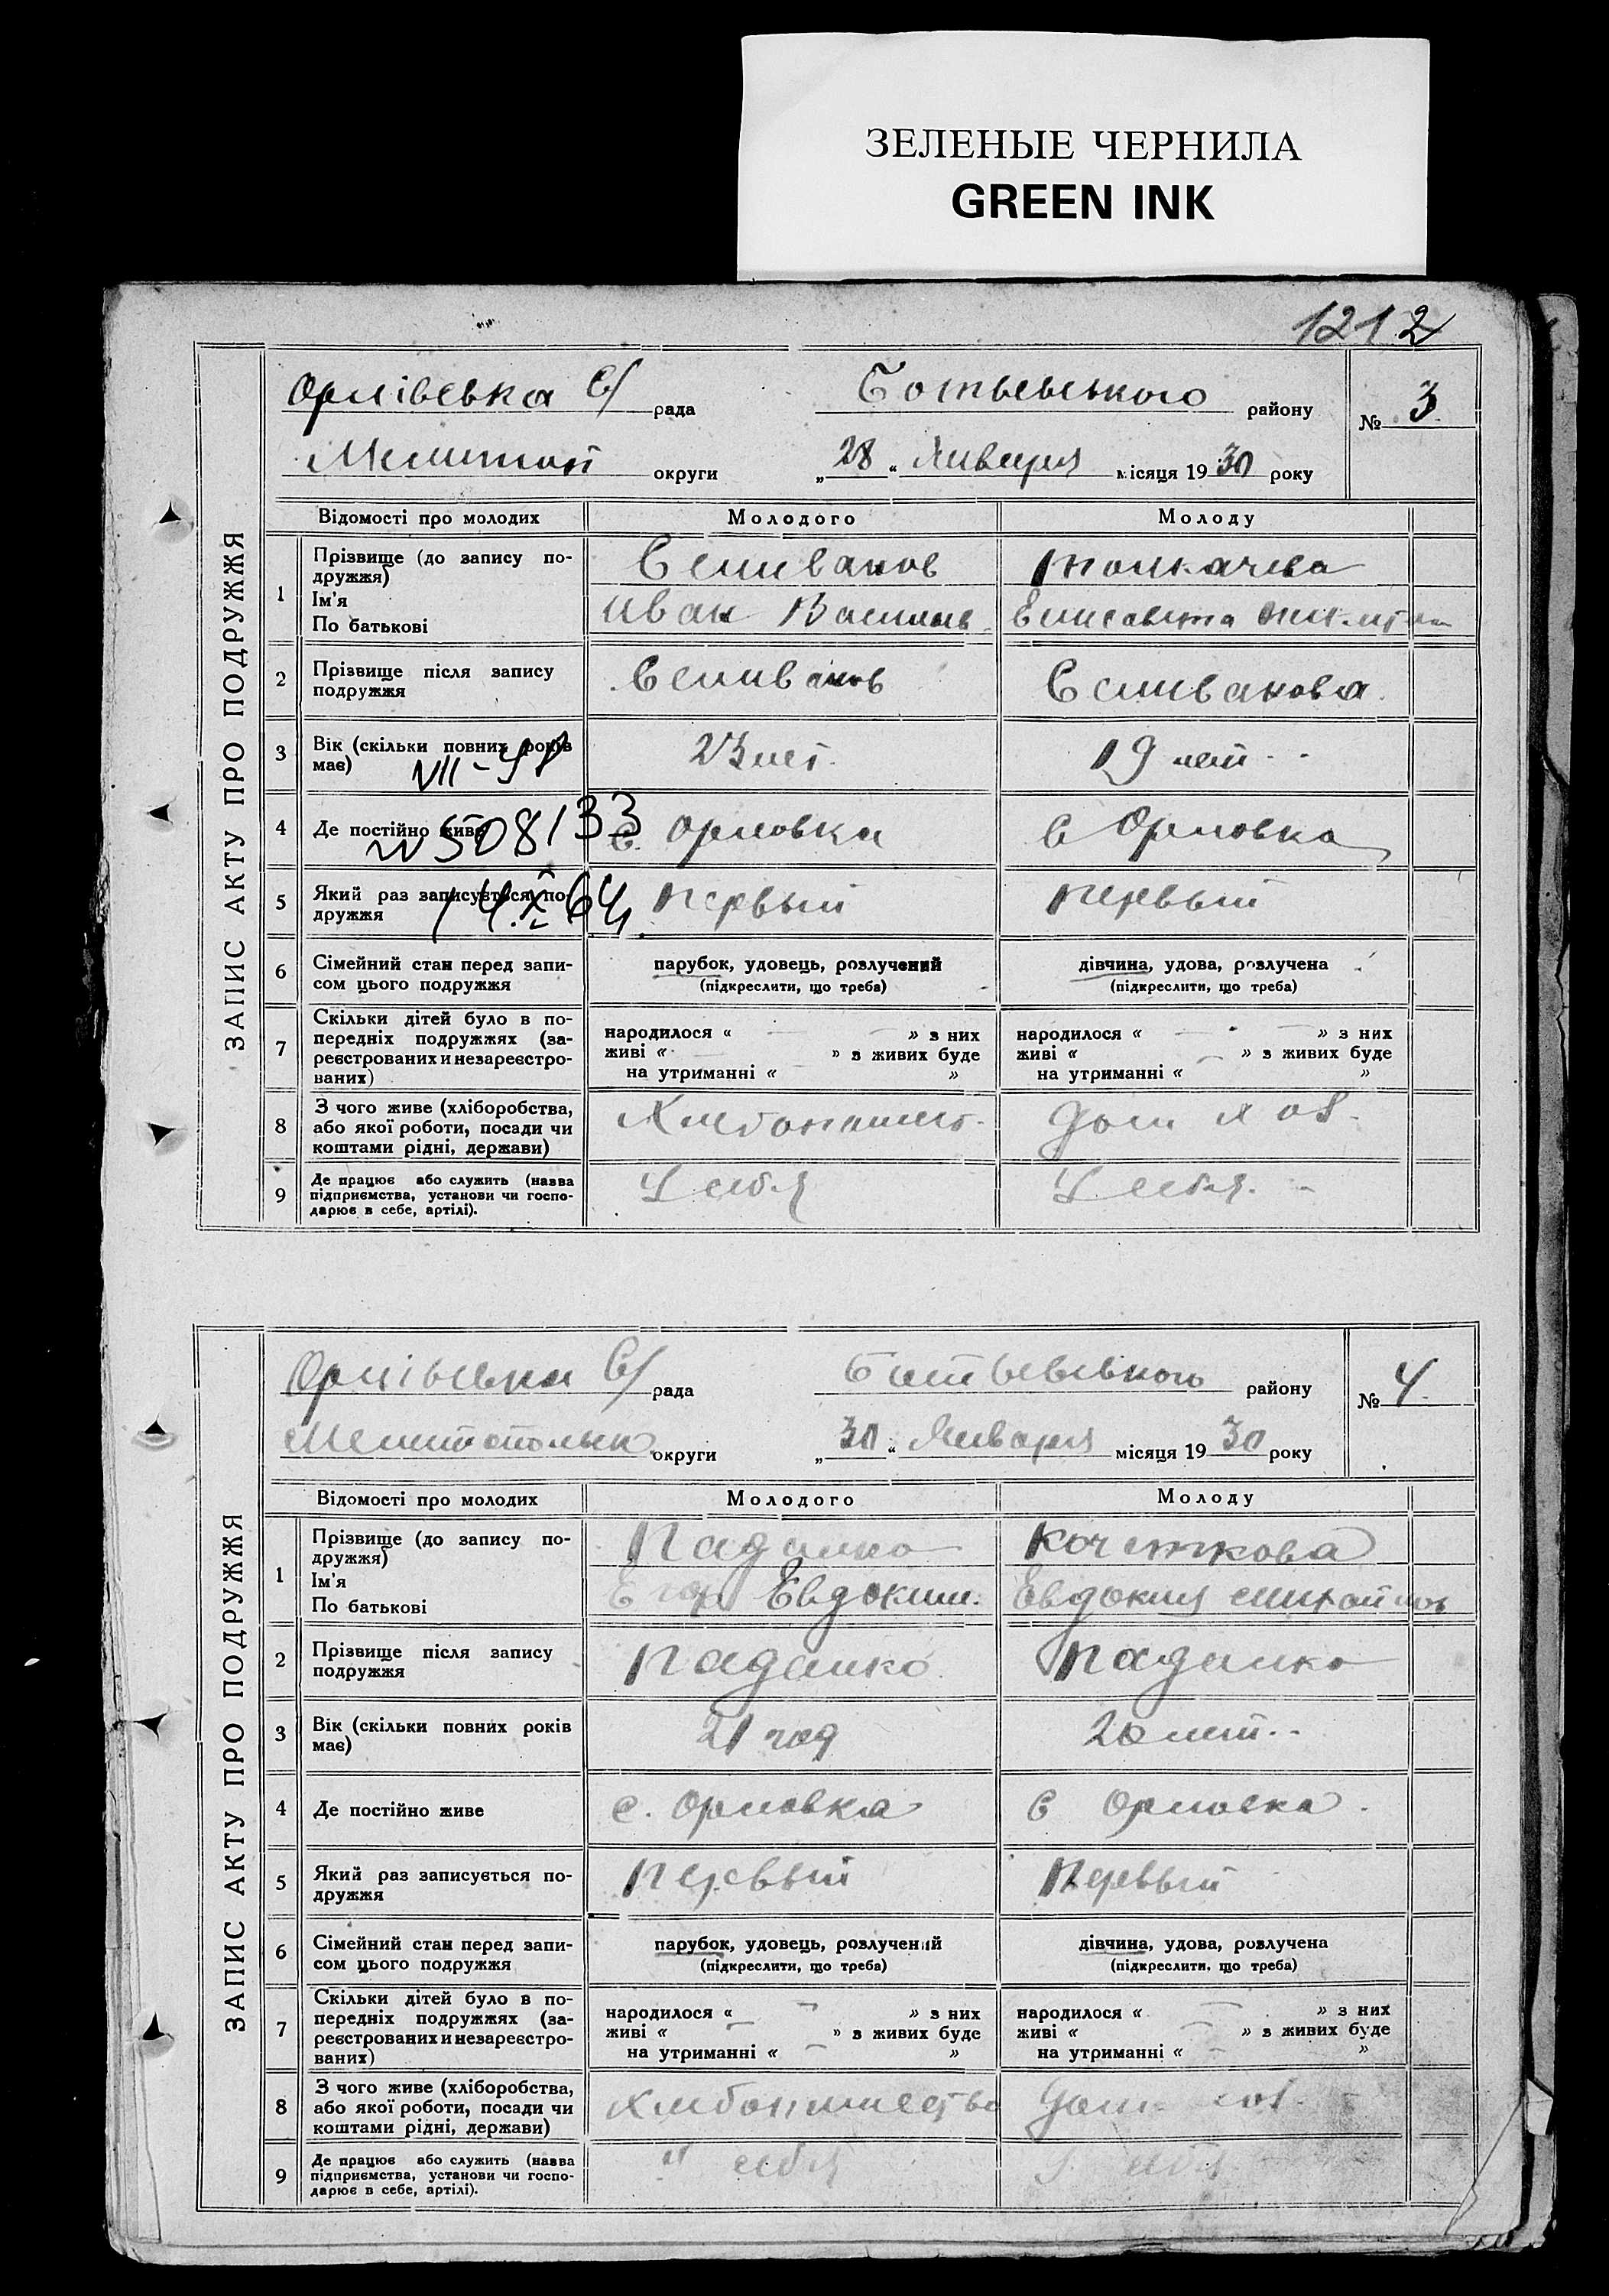 ЗЕЛЕНЫЕ ЧЕРНИЛА
GREEN INK
1212
ЗАПИС АКТУ ПРО ПОДРУЖЖЯ
Орлівська С/ рада Ботьевського району № 3
Мелитоп округи „28“ Января місяця 1930 року
Відомості про молодих Молодого Молоду
1 Прізвище (до запису по-
дружжя) Селиванов Толкачева
Ім'я
По батькові Иван Васильев Елисавета
2 Прізвище після запису
подружжя Селиванов Селиванова
3 Вік (скільки повних років
має) 23 лет. 19 лет
VII-
4 Де постійно живе с. Орловка с Орловка
№ 508133
5 Який раз записується по-
дружжя первый первый
14.X 64
6 Сімейний стан перед запи-
сом цього подружжя парубок, удовець, розлучений дівчина, удова, розлучена
(підкреслити, що треба) (підкреслити, що треба)
7 Скільки дітей було в по-
передніх подружжях (за-
реєстрованих и незареєстро-
ваних)
народилося « — » з них народилося « — » з них
живі « — » з живих буде живі « — » з живих буде
на утриманні « — » на утриманні « »
8 З чого живе (хліборобства,
або якої роботи, посади чи
коштами рідні, держави) Хлебопашест. Дом хоз.
9 Де працює або служить (назва
підприємства, установи чи госпо-
дарює в себе, артілі). У себя У себя.
ЗАПИС АКТУ ПРО ПОДРУЖЖЯ
Орлівська С/ рада Ботьевського району № 4
Мелитопольск округи „30“ Января місяця 1930 року
Відомості про молодих Молодого Молоду
1 Прізвище (до запису по-
дружжя) Падалко Кочеткова
Ім'я
По батькові Егор Евдоким. Евдокия Михайлов
2 Прізвище після запису
подружжя Падалко Падалко
3 Вік (скільки повних років
має) 21 год 20 лет
4 Де постійно живе с. Орловка с Орловка
5 Який раз записується по-
дружжя Первый Первый
6 Сімейний стан перед запи-
сом цього подружжя парубок, удовець, розлучений дівчина, удова, розлучена
(підкреслити, що треба) (підкреслити, що треба)
7 Скільки дітей було в по-
передніх подружжях (за-
реєстрованих и незареєстро-
ваних)
народилося « — » з них народилося « — » з них
живі « — » з живих буде живі « — » з живих буде
на утриманні « — » на утриманні « — »
8 З чого живе (хліборобства,
або якої роботи, посади чи
коштами рідні, держави) Хлебопашество Дом. хоз.
9 Де працює або служить (назва
підприємства, установи чи госпо-
дарює в себе, артілі). У себя У себя